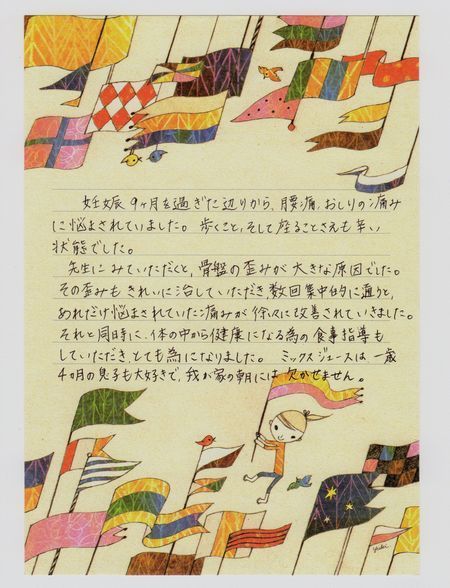 妊娠9ヶ月を過ぎた辺りから、腰痛、おしりの痛み
に悩まされていました。歩くこと、そして座ることさえも辛い
状態でした。
先生にみていただくと、骨盤の歪みが大きな原因でした。
その歪みもきれいに治していただき、数回集中的に通うと、
あれだけ悩まされていた痛みが徐々に改善されていきました。
それと同時に、体の中から健康になる為の食事指導も
していただき、とても為になりました。ミックスジュースは一歳
4カ月の息子も大好きで、我が家の朝には欠かせません。